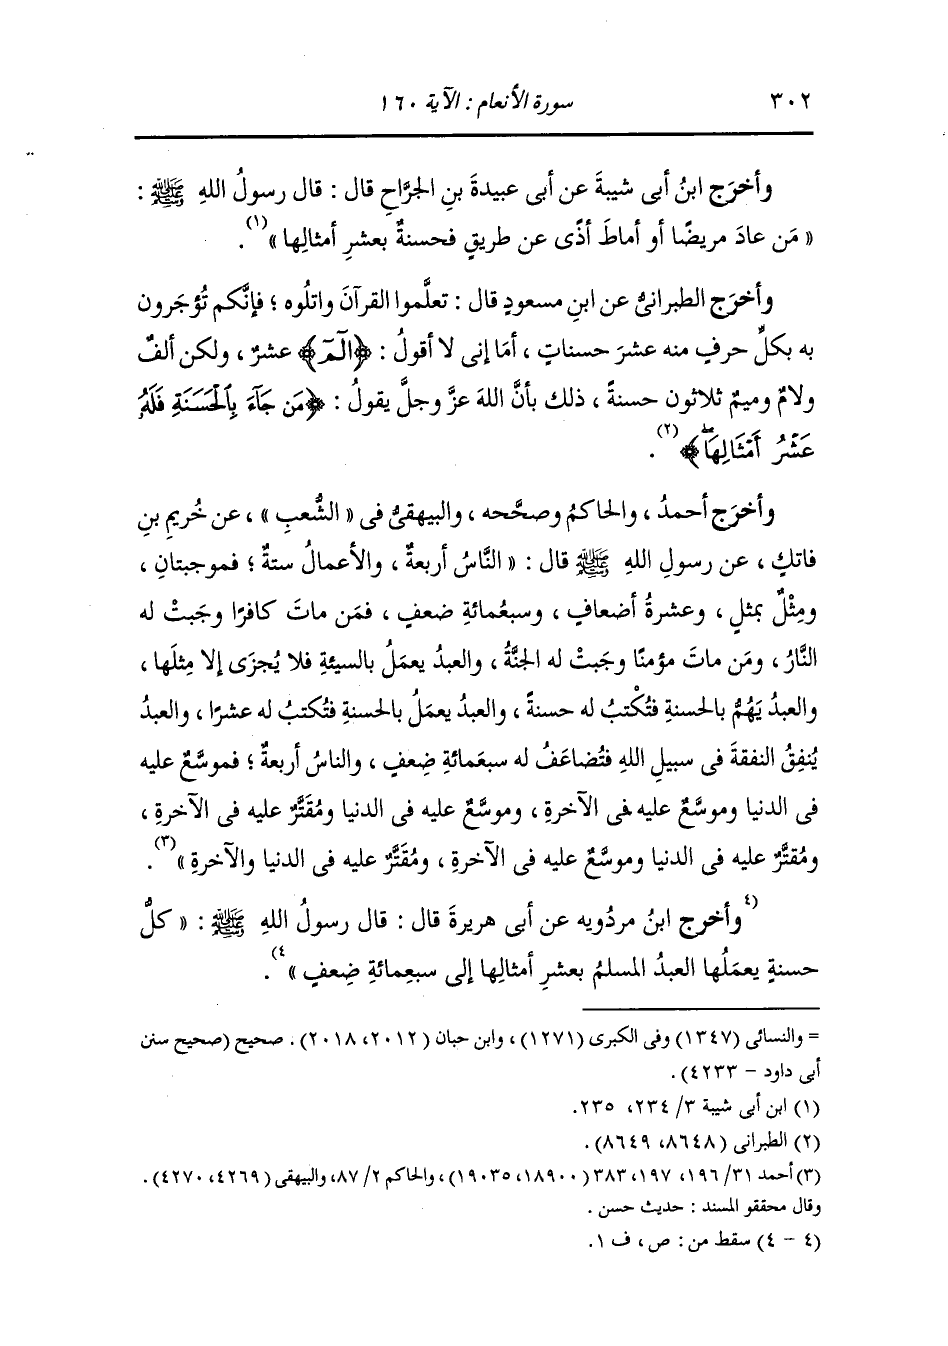 ٣٠٢ سورة الأنعام : الآية ١٦٠
وأخرَج ابنُ أبى شيبةَ عن أبى عبيدةَ بنِ الجرَّاحِ قال : قال رسولُ اللهِ ﷺ :
« مَن عادَ مريضًا أو أماطَ أذًى عن طريقٍ فحسنةٌ بعشرِ أمثالِها »(١).
وأخرَج الطبرانىُّ عن ابنِ مسعودٍ قال : تعلَّموا القرآنَ واتلُوه ؛ فإنَّكم تُؤجَرون
به بكلِّ حرفٍ منه عشرَ حسناتٍ ، أمَا إنى لا أقولُ : ﴿الٓمٓ﴾ عشرٌ ، ولكن ألفٌ
ولامٌ وميمٌ ثلاثون حسنةً ، ذلك بأنَّ اللهَ عزَّ وجلَّ يقولُ : ﴿مَن جَآءَ بِٱلۡحَسَنَةِ فَلَهُۥ
عَشۡرُ أَمۡثَالِهَاۖ﴾(٢).
وأخرَج أحمدُ ، والحاكمُ وصحَّحه ، والبيهقىُّ فى « الشُّعبِ » ، عن خُريمِ بنِ
فاتكٍ ، عن رسولِ اللهِ ﷺ قال : « النَّاسُ أربعةٌ ، والأعمالُ ستةٌ ؛ فموجبتانِ ،
ومِثْلٌ بمثلٍ ، وعشرةُ أضعافٍ ، وسبعُمائةِ ضعفٍ ، فمَن ماتَ كافرًا وجَبتْ له
النَّارُ ، ومَن ماتَ مؤمنًا وجَبتْ له الجنَّةُ ، والعبدُ يعمَلُ بالسيئةِ فلا يُجزَى إلا مِثلَها ،
والعبدُ يَهُمُّ بالحسنةِ فتُكْتبُ له حسنةً ، والعبدُ يعمَلُ بالحسنةِ فتُكتبُ له عشرًا ، والعبدُ
يُنفِقُ النفقةَ فى سبيلِ اللهِ فتُضاعَفُ له سبعَمائةِ ضِعفٍ ، والناسُ أربعةٌ ؛ فموسَّعٌ عليه
فى الدنيا وموسَّعٌ عليه فى الآخرةِ ، وموسَّعٌ عليه فى الدنيا ومُقَتَّرٌ عليه فى الآخرةِ ،
ومُقتَّرٌ عليه فى الدنيا وموسَّعٌ عليه فى الآخرةِ ، ومُقَتَّرٌ عليه فى الدنيا والآخرةِ »(٣).
(٤وأخرج ابنُ مردُويه عن أبى هريرةَ قال : قال رسولُ اللهِ ﷺ : « كلُّ
حسنةٍ يعمَلُها العبدُ المسلمُ بعشرِ أمثالِها إلى سبعِمائةِ ضِعفٍ »٤).
= والنسائى (١٣٤٧) وفى الكبرى (١٢٧١) ، وابن حبان (٢٠١٢، ٢٠١٨) . صحيح (صحيح سنن
أبى داود – ٤٢٣٣) .
(١) ابن أبى شيبة ٣/ ٢٣٤، ٢٣٥.
(٢) الطبرانى (٨٦٤٨، ٨٦٤٩) .
(٣) أحمد ٣١/ ١٩٦، ١٩٧، ٣٨٣ (١٨٩٠٠، ١٩٠٣٥) ، والحاكم ٢/ ٨٧، والبيهقى (٤٢٦٩، ٤٢٧٠) .
وقال محققو المسند : حديث حسن .
(٤ – ٤) سقط من : ص ، ف ١.